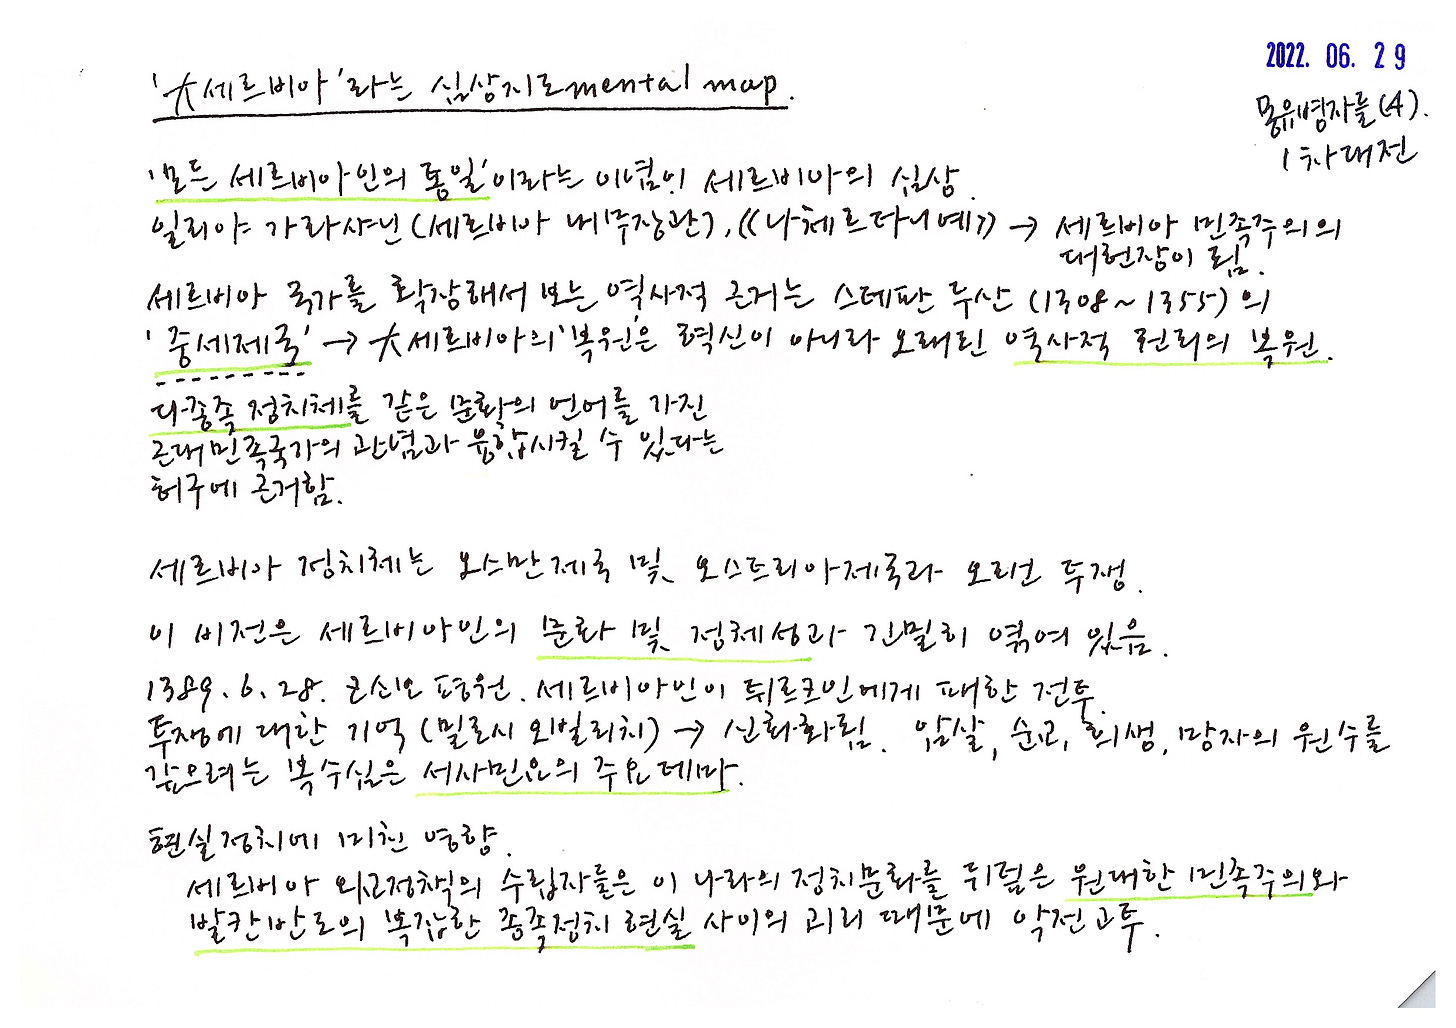 2022. 06. 29
몽유병자들(4).
1차대전
'大세르비아'라는 심상지도mental map.
'모든 세르비아인의 통일'이라는 이념이 세르비아의 심상.
일리야 가라샤닌(세르비아 내무장관), 《나체르타니예》 → 세르비아 민족주의의
대헌장이 됨.
세르비아 국가를 확장해서 보는 역사적 근거는 스테판 두샨 (1308~1355)의
'중세제국' → 大세르비아의 '복원'은 혁신이 아니라 오래된 역사적 권리의 복원.
다종족 정치체를 같은 문화의 언어를 가진
근대민족국가의 관념과 융합시킬 수 있다는
허구에 근거함.
세르비아 정치체는 오스만제국 및 오스트리아제국과 오리던 투쟁.
이 비전은 세르비아인의 문화 및 정체성과 긴밀히 엮여 있음.
1389. 6. 28. 코소보 평원. 세르비아인이 튀르크인에게 패한 전투.
투쟁에 대한 기억 (밀로시 오빌리치) → 신화화됨. 암살, 순교, 희생, 망자의 원수를
갚으려는 복수심은 서사민요의 주요 테마.
현실정치에 미친 영향.
세르비아 외교정책의 수립자들은 이 나라의 정치문화를 뒤덮은 원대한 민족주의와
발칸반도의 복잡한 종족정치 현실 사이의 괴리 때문에 악전고투.